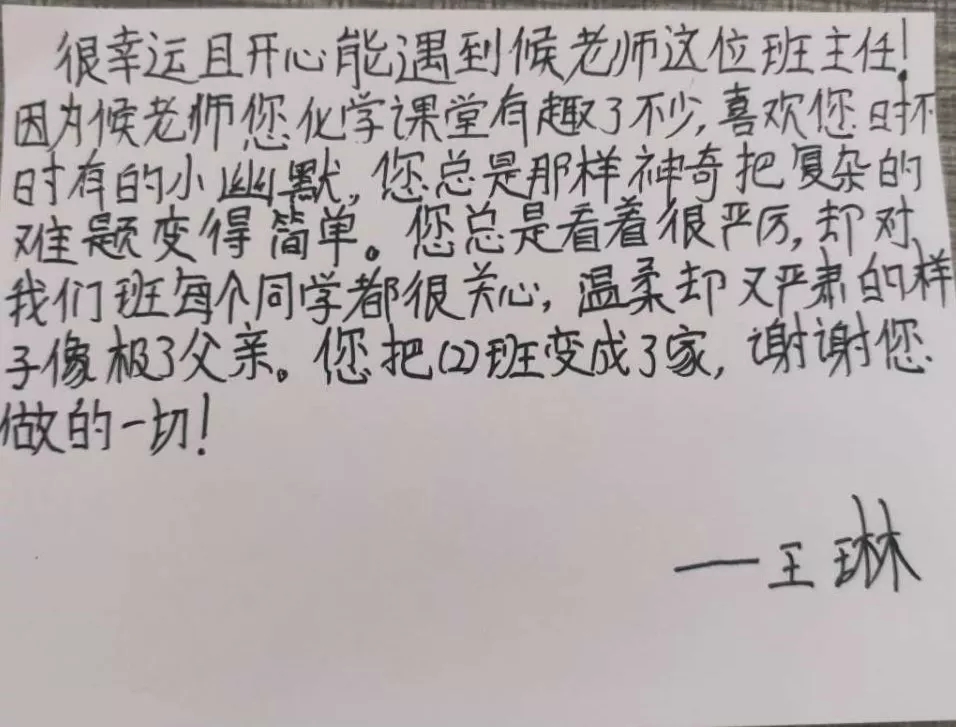 很幸运且开心能遇到候老师这位班主任!
因为候老师您化学课堂有趣了不少,喜欢您时不
时有的小幽默,您总是那样神奇把复杂的
难题变得简单。您总是看着很严厉,却对
我们班每个同学都很关心,温柔却又严肃的样
子像极了父亲。您把(2)班变成了家,谢谢您
做的一切!
——王琳